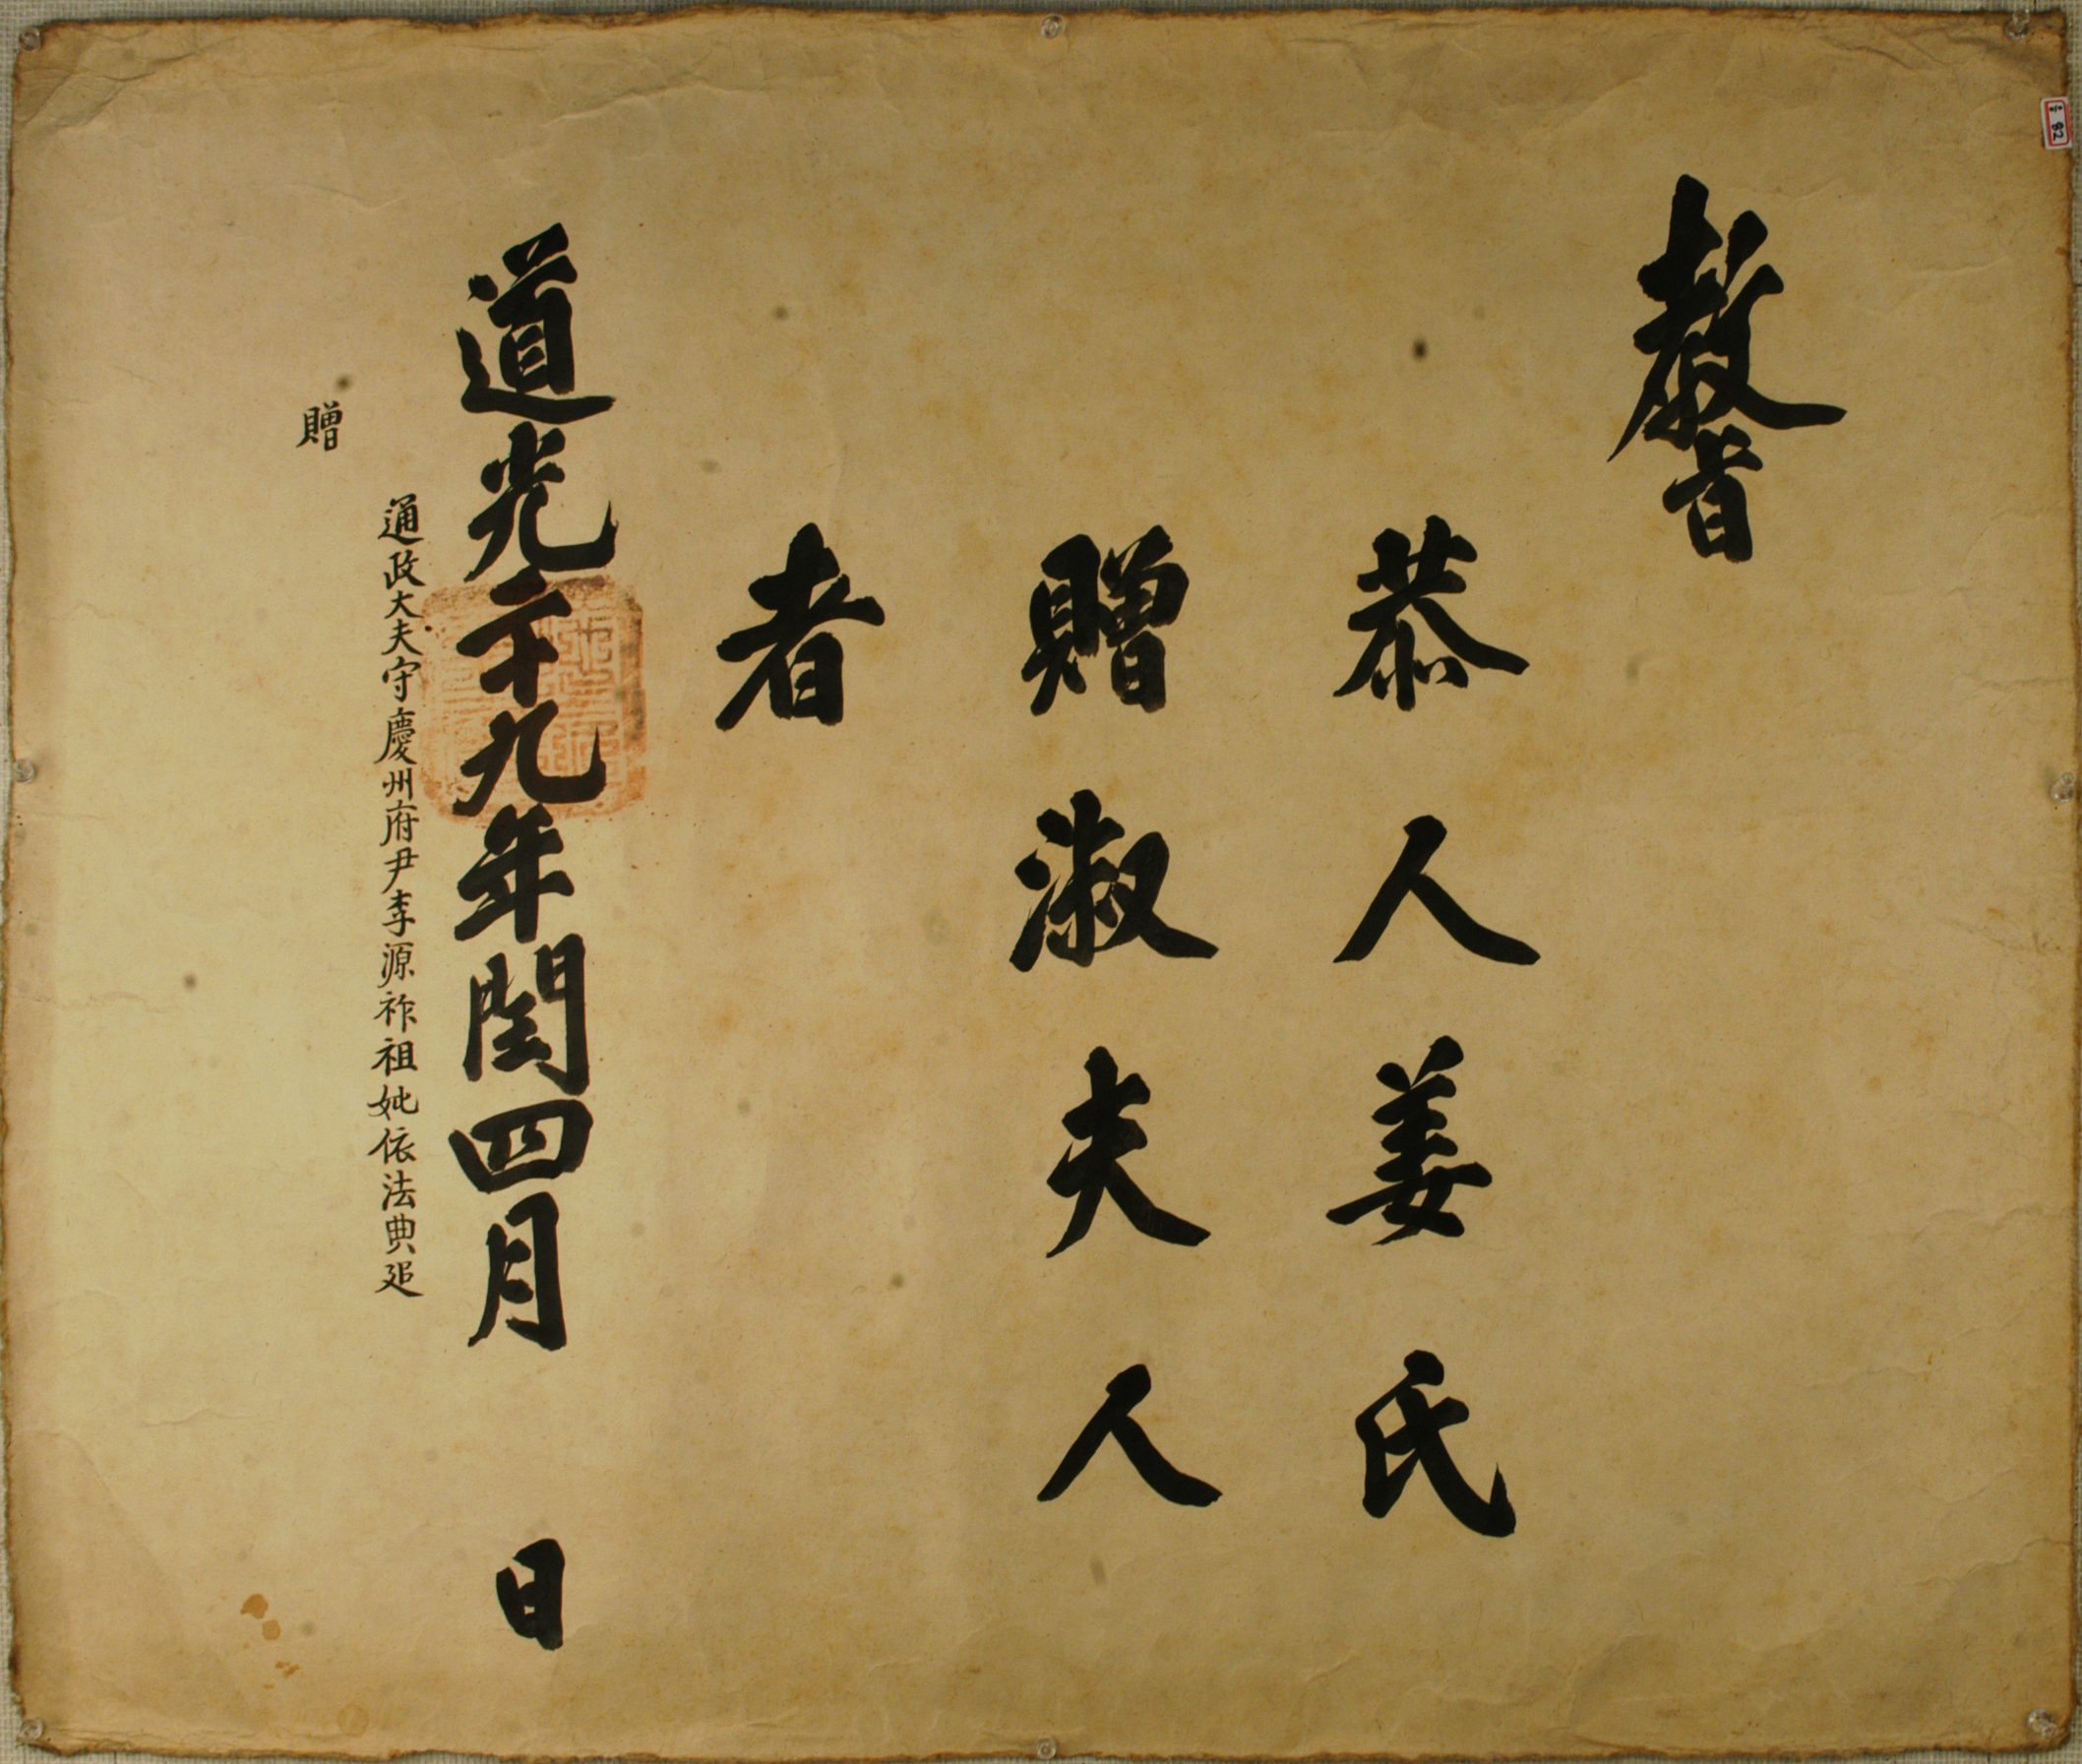 敎旨
恭人姜氏
贈淑夫人
者
道光二十九年閏四月 日
通政大夫守慶州府尹李源祚祖妣依法典追
贈
82